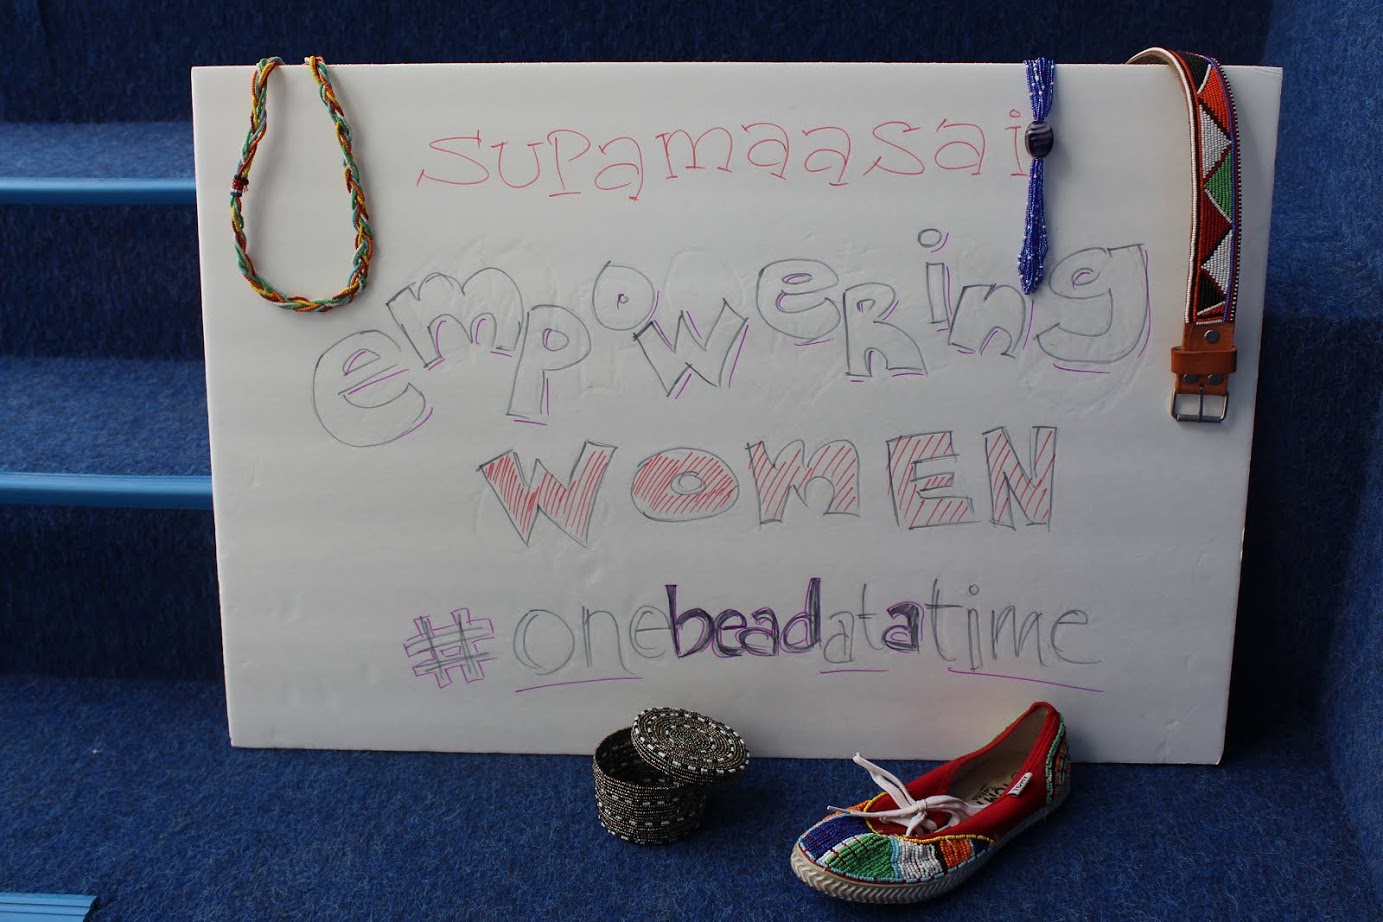 supamaasai
empowering
WOMEN
#onebeadatatime